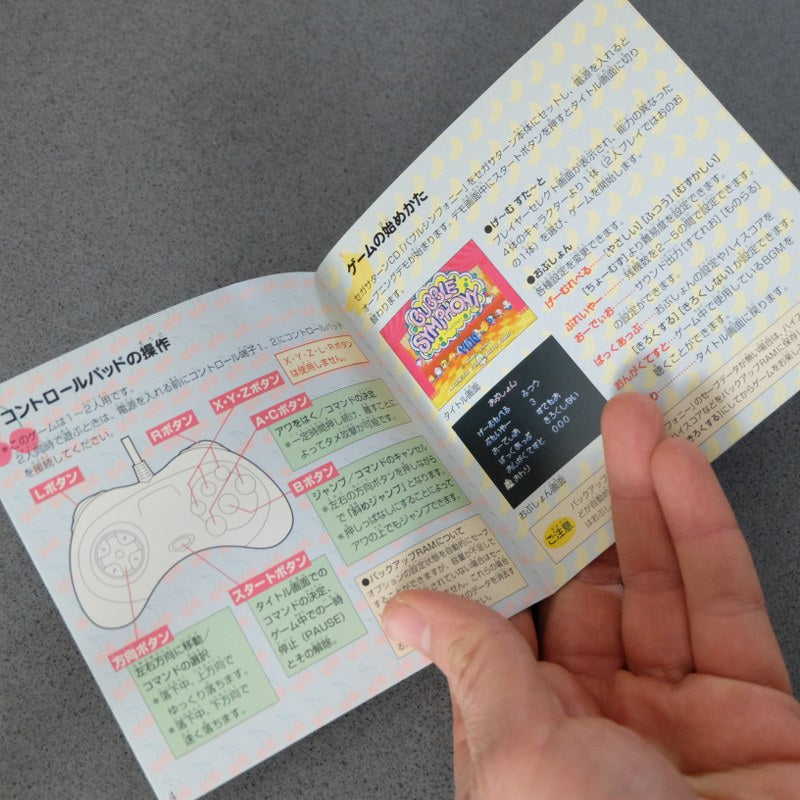 コントロールパッドの操作
●このゲームは1〜2人用です。
2人同時で遊ぶときは、電源を入れる前にコントロール端子1、2にコントロールパッド
を接続してください。
X・Y・Z・L・Rボタン
は使用しません。
Lボタン
Rボタン
X・Y・Zボタン
A・Cボタン
アワをはく／コマンドの決定
*一定時間押し続け、離すことに
よってタメ攻撃が可能です。
Bボタン
ジャンプ／コマンドのキャンセル
*左右の方向ボタンを押しながら
で「斜めジャンプ」となります。
*押しっぱなしにすることによって
アワの上でもジャンプできます。
スタートボタン
タイトル画面での
コマンドの決定、
ゲーム中での一時
停止（PAUSE）
とその解除。
方向ボタン
左右方向に移動／
コマンドの選択
*落下中、上方向で
ゆっくり落ちます。
*落下中、下方向で
速く落ちます。
●バックアップRAMについて
オプションの設定状態を自動的にセーブ
4
ゲームの始めかた
セガサターンCD「バブルシンフォニー」をセガサターン本体にセットし、電源を入れると
オープニングデモが始まります。デモ画面中にスタートボタンを押すとタイトル画面に切り
替わります。
BUBBLE
SYMPHONY
タイトル画面
●げーむ すたーと
プレイヤーセレクト画面が表示され、能力の異なった
4体のキャラクターより1体（2人プレイではおのお
の1体）を選び、ゲームを開始します。
●おぷしょん
各種設定が変更できます。
げーむれべる……[やさしい] [ふつう] [むずかしい]
[ちょーむず] より難易度を設定できます。
ぷれいやー……残機数を2〜5の間で設定できます。
おーでぃお……サウンド出力 [すてれお] [ものらる]
の設定ができます。
ばっくあっぷ……おぷしょんの設定やハイスコアを
[きろくする] [きろくしない] が設定できます。
おんがくてすと…ゲーム中で使用しているBGMを
聴くことができます。
り……タイトル画面に戻ります。
おぷしょん
げーむれべる ふつう
ぷれいやー 3
おーでぃお すてれお
ばっくあっぷ きろくしない
おんがくてすと 000
おぷしょん画面
ご注意